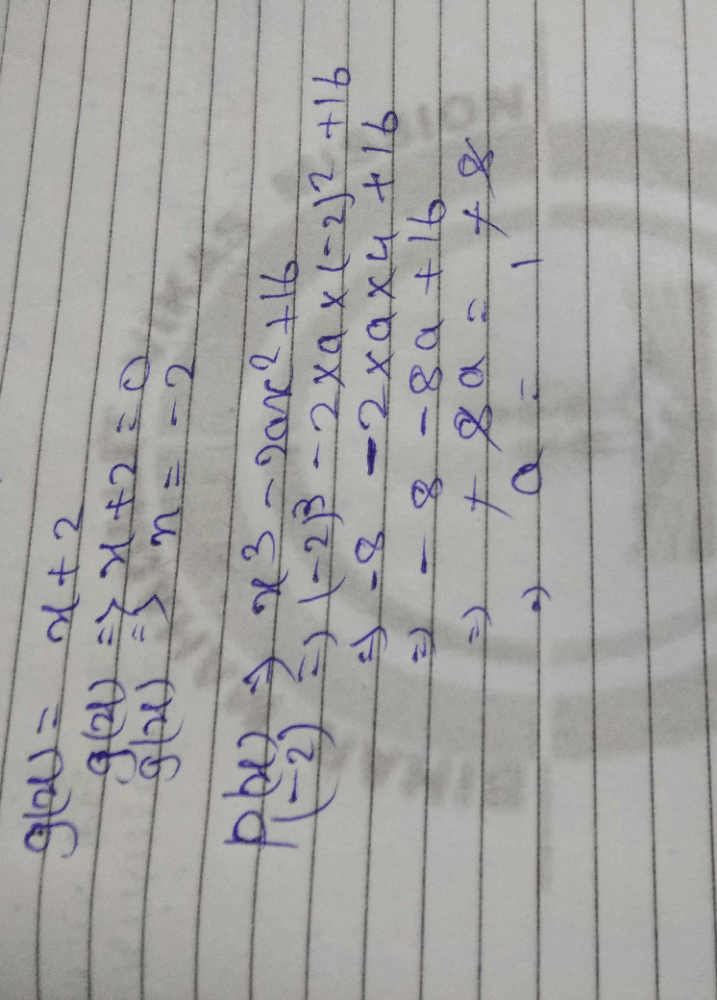 g(x) = x + 2
g(x) ⇒ x + 2 = 0
g(x) ⇒ x = -2
p(x) ⇒ x³ - 2ax² + 16
(-2) ⇒ (-2)³ - 2 × a × (-2)² + 16
⇒ -8 - 2 × a × 4 + 16
⇒ - 8 - 8a + 16
⇒ + 8a = + 8
⇒ a = 1